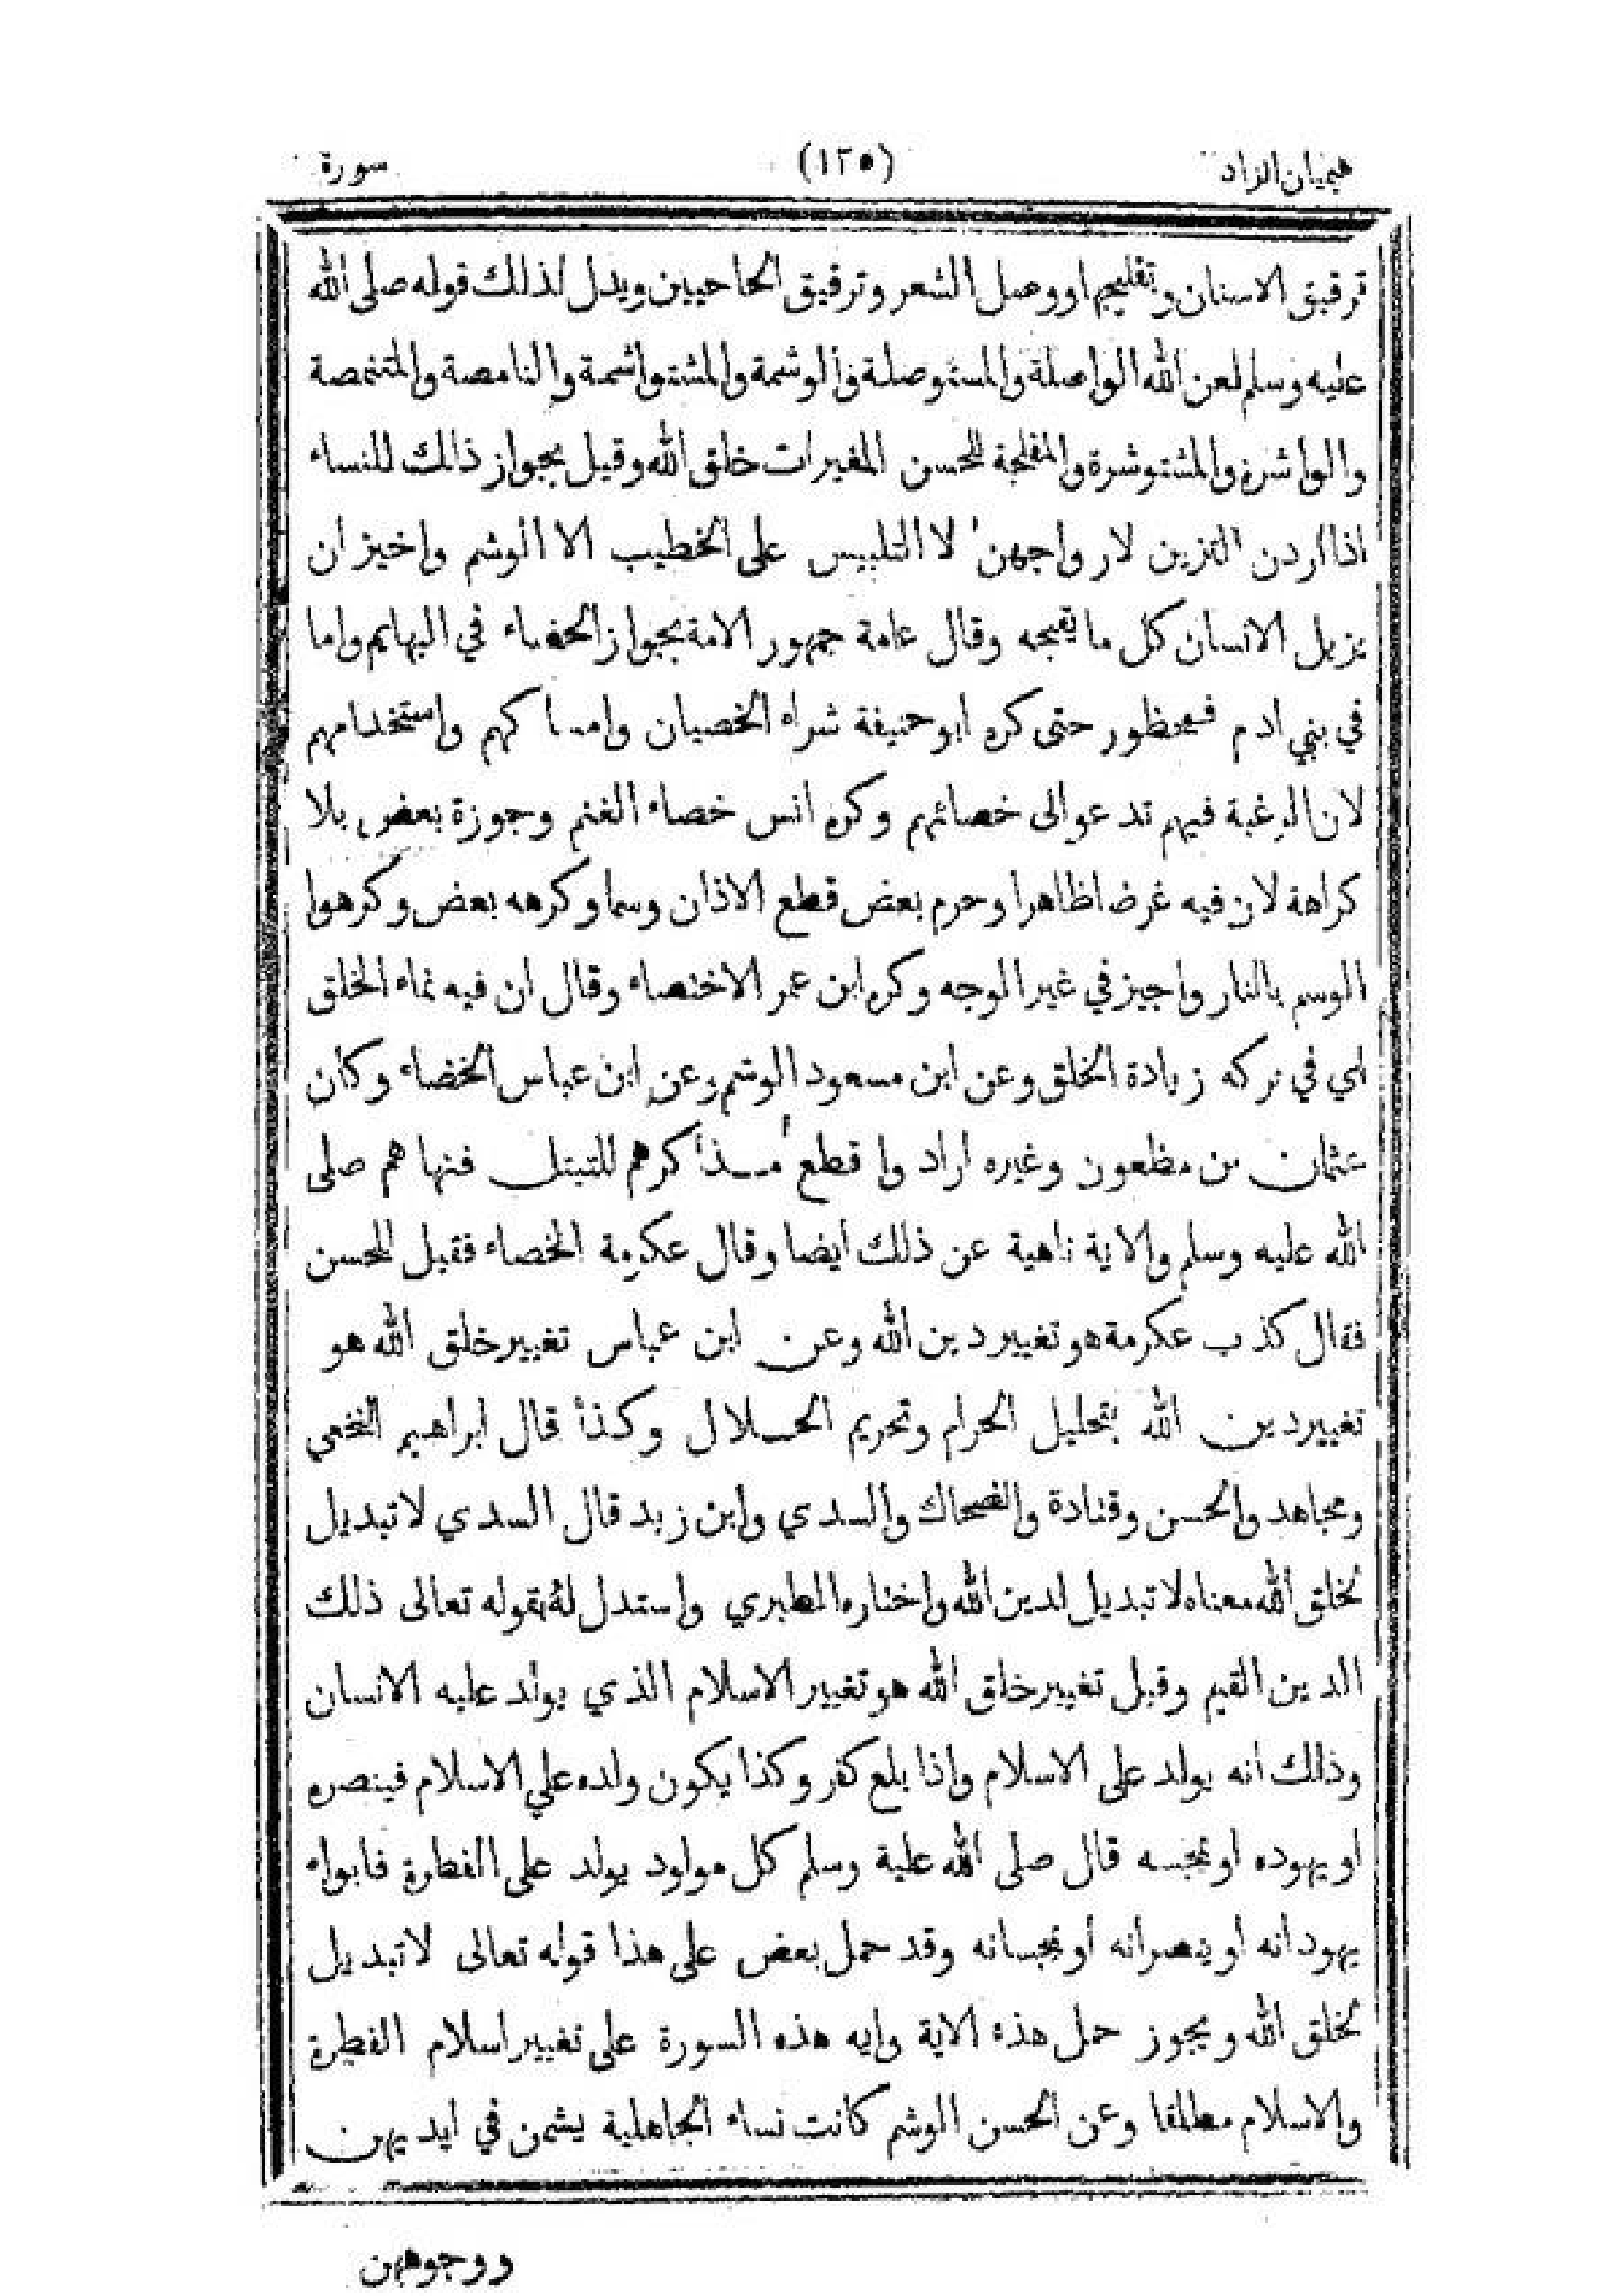 هيميان الزاد (١٢٥) سورة
ترقيق الاسنان وتفليجها ووصل الشعر وترقيق الحاجبين ويدل لذلك قوله صلى الله
عليه وسلم لعن الله الواصلة والمستوصلة والوشمة والمشتواشمة والنامصة والمتنمصة
والواشرة والمشتوشرة والمفلجة للحسن المغيرات خلق الله وقيل بجواز ذالك للنساء
اذا اردن التزين لازواجهن لا التلبيس على الخطيب الا الوشم واخيز ان
يزيل الانسان كل ما يقبحه وقال عامة جمهور الامة بجواز الخصاء في البهايم واما
في بني ادم فمحظور حتى كره ابو حنيفة شراء الخصيان وامساكهم واستخدامهم
لان الرغبة فيهم تدعو الى خصائهم وكره انس خصاء الغنم وجوزة بعض بلا
كراهة لان فيه غرضا ظاهرا وحرم بعض قطع الاذان وسما وكرهه بعض وكرهوا
الوسم بالنار واجيز في غير الوجه وكره ابن عمر الاختصاء وقال ان فيه نماء الخلق
اي في تركه زيادة الخلق وعن ابن مسعود الوشم وعن ابن عباس الخضاء وكان
عثمان بن مظعون وغيره اراد وا قطع مذاكرهم للتبتل فنهاهم صلى
الله عليه وسلم والاية ناهية عن ذلك ايضا وقال عكرمة الخصاء فقيل للحسن
فقال كذب عكرمة هو تغيير دين الله وعن ابن عباس تغيير خلق الله هو
تغيير دين الله بتحليل الحرام وتحريم الحلال وكذا قال ابراهيم النخعي
ومجاهد والحسن وقتادة والضحاك والسدي وابن زيد قال السدي لا تبديل
لخلق الله معناه لا تبديل لدين الله واختاره الطبري واستدل له بقوله تعالى ذلك
الدين القيم وقيل تغيير خلق الله هو تغيير الاسلام الذي يولد عليه الانسان
وذلك انه يولد على الاسلام واذا بلغ كفر وكذا يكون ولده علي الاسلام فينصره
او يهوده او يمجسه قال صلى الله علية وسلم كل مولود يولد على الفطرة فابواه
يهودانه او ينصرانه أو يمجسانه وقد حمل بعض على هذا قوله تعالى لا تبديل
لخلق الله ويجوز حمل هذه الاية وايه هذه السورة على تغيير اسلام الفطرة
والاسلام مطلقا وعن الحسن الوشم كانت نساء الجاهلية يشمن في ايديهن
ووجوههن